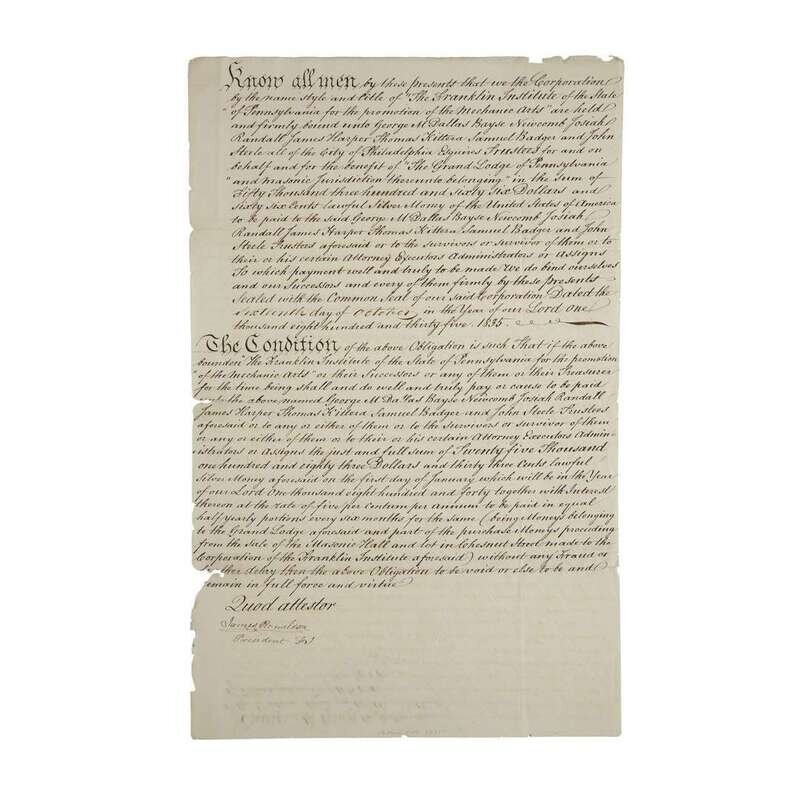 Know all men by these presents that we the Corporation
by the name style and title of "The Franklin Institute of the State
"of Pennsylvania for the promotion of the Mechanic Arts" are held
and firmly bound unto George M Dallas Bayse Newcomb Josiah
Randall James Harper Thomas Kittera Samuel Badger and John
Steele all of the City of Philadelphia Esquires Trustees for and on
behalf and for the benefit of "The Grand Lodge of Pennsylvania
"and Masonic Jurisdiction thereunto belonging" in the sum of
Fifty Thousand three hundred and Sixty Six Dollars and
Sixty six Cents lawful Silver Money of the United States of America
to be paid to the said George M Dallas Bayse Newcomb Josiah
Randall James Harper Thomas Kittera Samuel Badger and John
Steele Trustees aforesaid or to the survivors or survivor of them or to
their or his certain Attorney Executors Administrators or Assigns
To which payment well and truly to be made We do bind ourselves
and our Successors and every of them firmly by these presents
Sealed with the Common Seal of our said Corporation Dated the
Sixteenth day of October in the Year of our Lord one
thousand eight hundred and thirty five. 1835.
The Condition of the above Obligation is such That if the above
bounden "The Franklin Institute of the State of Pennsylvania for the promotion
"of the Mechanic Arts" or their Successors or any of them or their Treasurer
for the time being shall and do well and truly pay or cause to be paid
the above named George M Dallas Bayse Newcomb Josiah Randall
James Harper Thomas Kittera Samuel Badger and John Steele Trustees
aforesaid or to any or either of them or to the survivors or survivor of them
or any or either of them or to their or his certain Attorney Executors Admin-
istrators or Assigns the just and full sum of Twenty five Thousand
one hundred and eighty three Dollars and thirty three Cents lawful
Silver Money aforesaid on the first day of January which will be in the Year
of our Lord One thousand eight hundred and forty together with Interest
thereon at the rate of five per Centum per annum to be paid in equal
half yearly portions every six months for the same (being Moneys belonging
to the Grand Lodge aforesaid and part of the purchase Moneys proceeding
from the sale of the Masonic Hall and lot in Chesnut Street made to the
Corporation of the Franklin Institute aforesaid) without any Fraud or
further delay then the above Obligation to be void or else to be and
remain in full force and virtue
Quod attestor
James Ronaldson
President